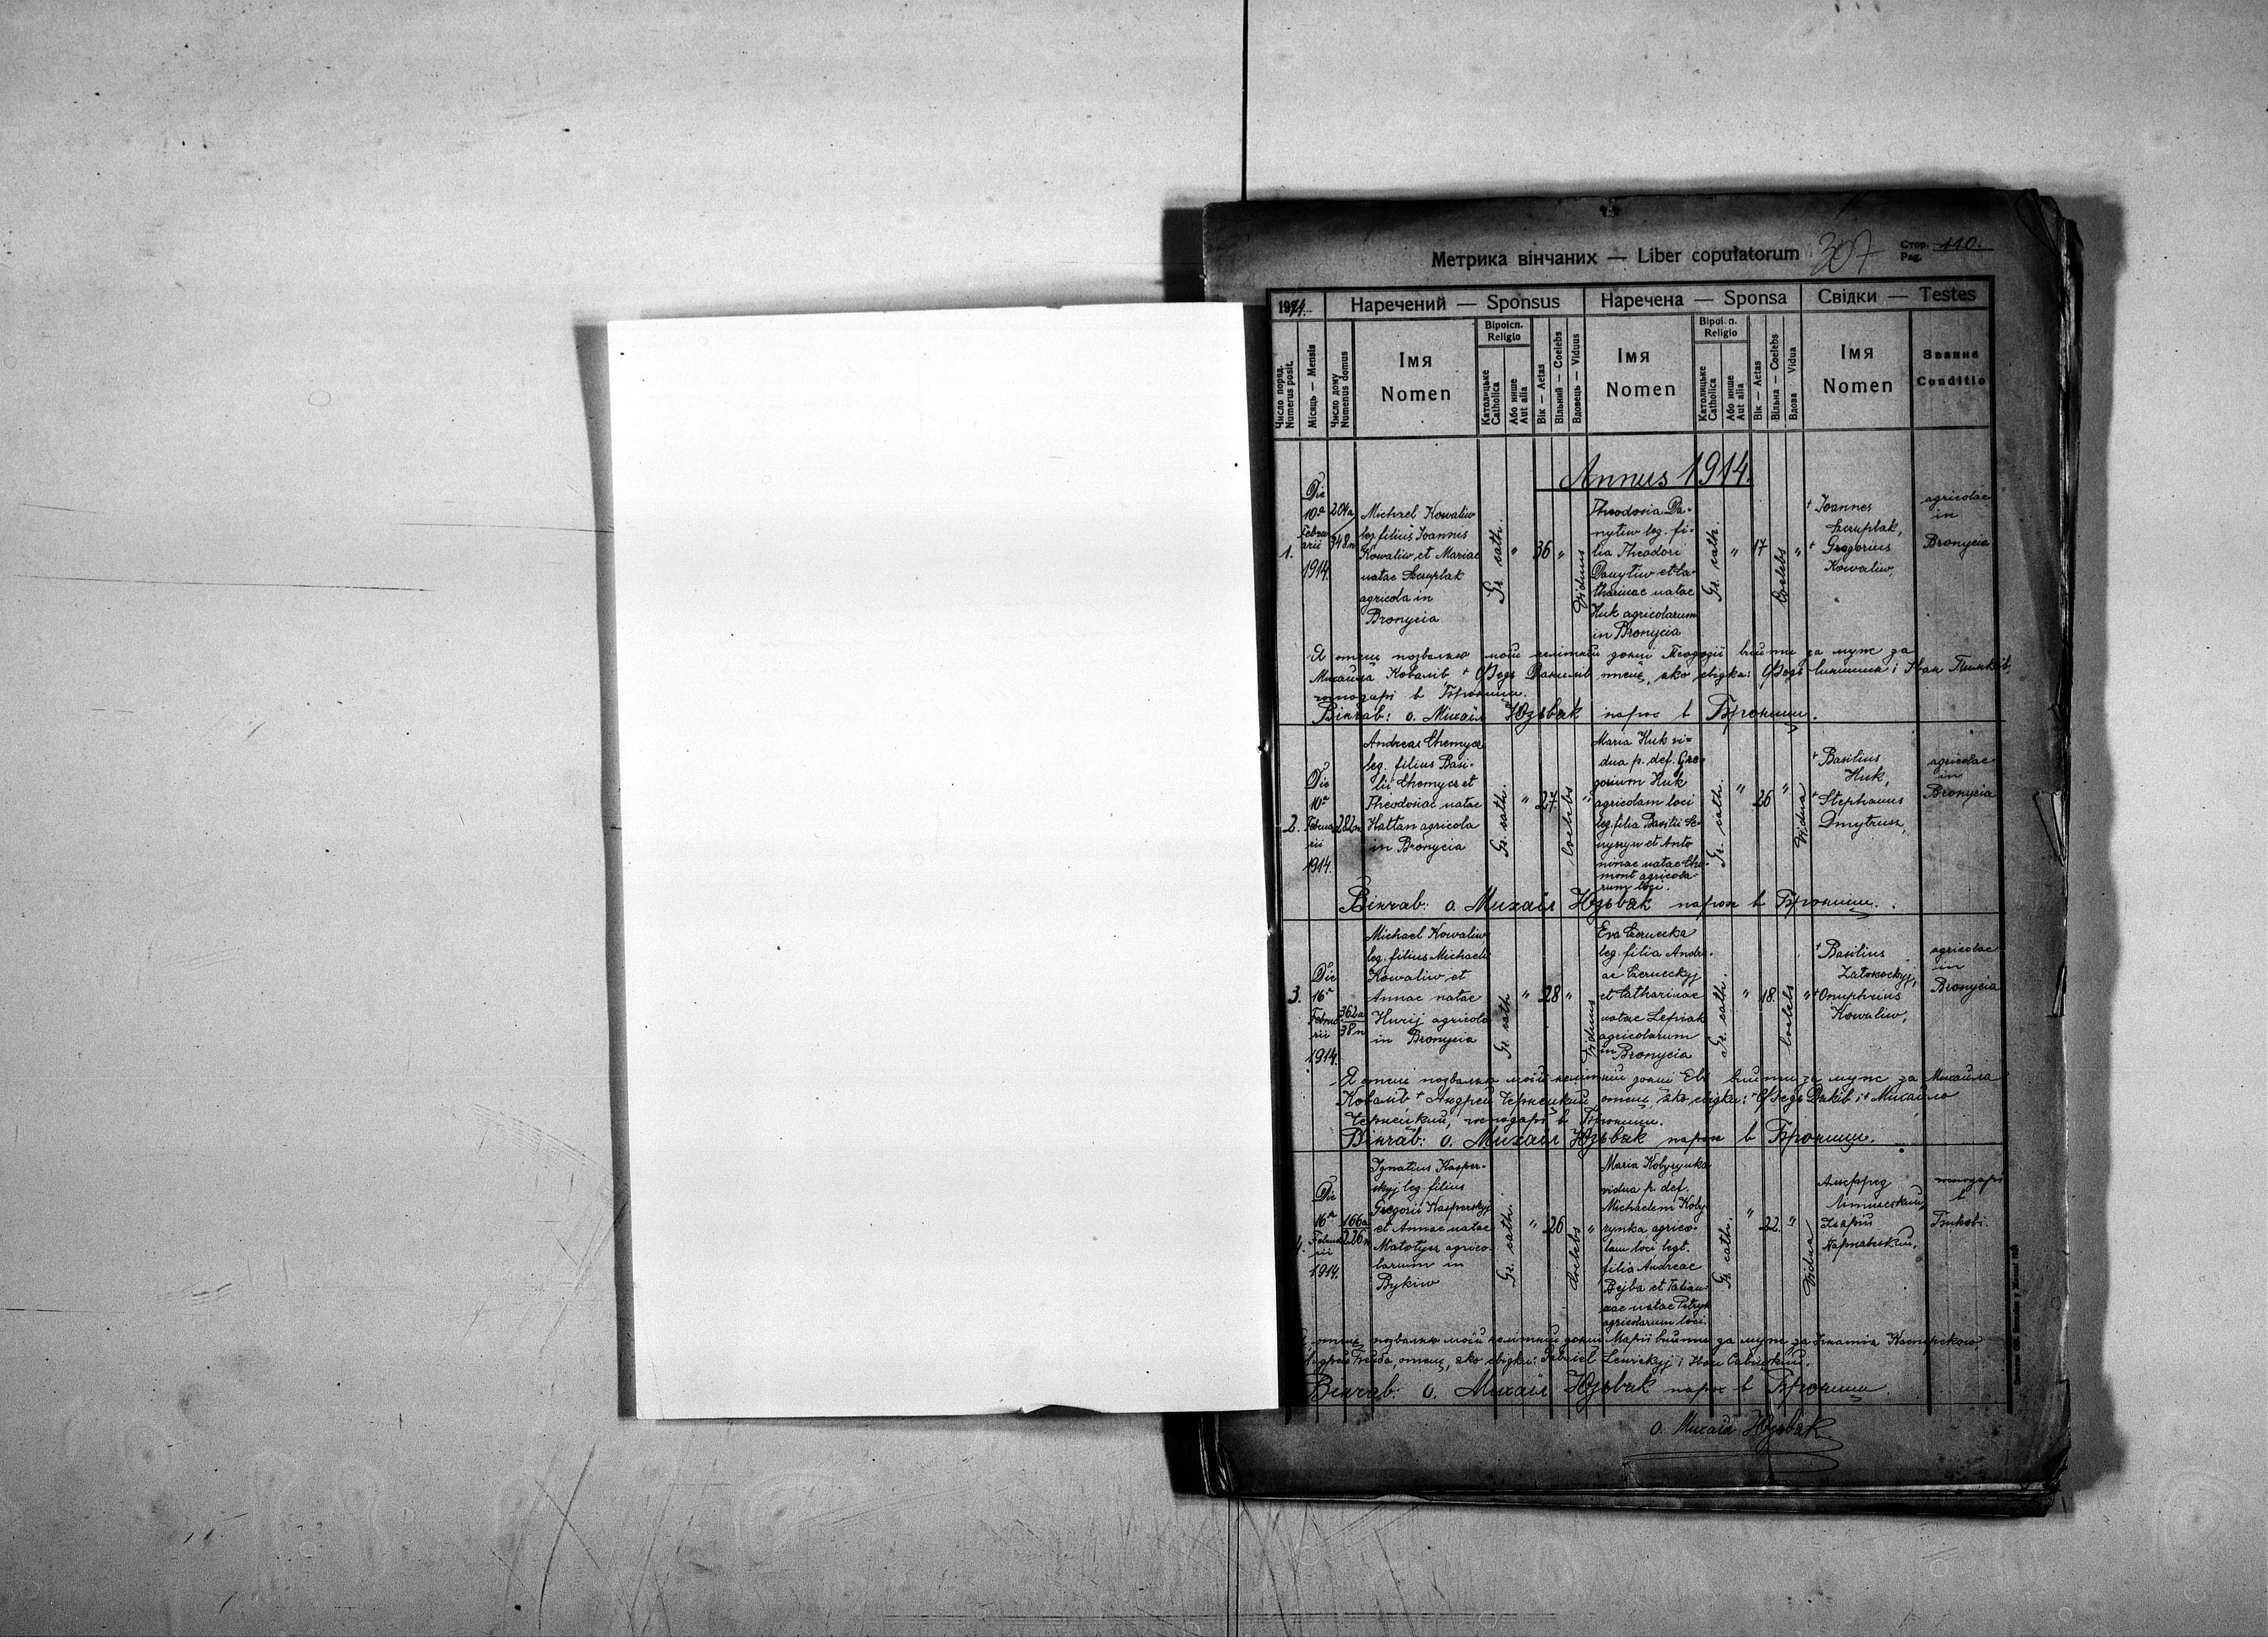 Метрика вінчаних — Liber copulatorum 307 Стор. Pag. 110.
1914. Наречений — Sponsus Наречена — Sponsa Свідки — Testes
Число поряд. Numerus posit.
Місяць — Mensis
Число дому Numerus domus
Імя Nomen
Віроісп. Religio
Католицьке Catholica
Або инше Aut alia
Вік — Aetas
Вільний — Coelebs
Вдовець — Viduus
Імя Nomen
Religio
Католицьке Catholica
Або инше Aut alia
Вік — Aetas
Вільна — Coelebs
Вдова Vidua
Імя Nomen
Звание Conditio
Annus 1914.
1.
Die
10ª
Febru
arii
1914.
204a
348n
Michael Kowaliw
leg. filius Joannis
Kowaliw et Mariae
natae
agricola in
Bronycia
Gr. cath.
"
36
"
Viduus
Theodosia Da-
nytiw leg. fi-
lia Theodori
Danytiw et Ca-
tharinae natae
Huk agricolarum
in Bronycia
Gr. cath.
"
17
Coelebs
"
+ Joannes
+ Gregorius
Kowaliw,
agricolae
in
Bronycia
Я отец позваляю моїй нелітній доньці Теодозії вийти за муж за
Михайла Ковалів + Федь Данилів отец, яко свідки: і Іван
господарі в Броници.
Вінчав: о. Михаїл Юзьвак парох в Броници.
2.
Die
10ª
Februa
rii
1914.
282n
Andreas Chemycz
leg. filius Basi-
lii Chemycz et
Theodosiae natae
Hattan agricola
in Bronycia
Gr. cath.
"
27
Coelebs
"
Maria Huk vi-
dua p. def. Gre-
gorium Huk
agricolam loci
leg. filia Basilii Se-
et Anto
ninae natae
agricola-
rum loci.
Gr. cath.
"
26
"
Vidua
+ Basilius
Huk,
+ Stephanus
Dmytrusz,
agricolae
in
Bronycia
Вінчав: о. Михаїл Юзьвак парох в Броници.
3.
Die
16ª
Februa
rii
1914.
362a
38n
Michael Kowaliw
leg. filius Michaelis
Kowaliw et
Annae natae
Hurij agricola
in Bronycia
Gr. cath.
"
28
"
Viduus
Eva Czernecka
leg. filia Andre-
ae Czerneckyj
et Catharinae
natae
agricolarum
in Bronycia
Gr. cath.
"
18.
Coelebs
"
+ Basilius
Zatokockyj,
+ Onuphrius
Kowaliw,
agricolae
in
Bronycia
Я отец позваляю моїй нелітній доньці Еві вийти за муж за Михаила
Ковалів + Андрей Чернецкий отец, яко свідки: + Федь Дяків і + Михайло
Чернецкий, господарі в Броници.
Вінчав: о. Михаїл Юзьвак парох в Броници.
4.
Die
16ª
Februa
rii
1914.
166a
226n
Ignatius Kasper-
skyj leg. filius
Gregorii Kasperskyj
et Annae natae
Matotysz agrico-
larum in
Bykiw
Gr. cath.
"
26
Coelebs
"
Maria Kobyrynka
vidua p. def.
Michaelem Koby-
rynka, agrico-
lam loci, legt.
filia Andreae
Bejba et Tatian-
nae natae Petryk
agricolarum loci.
Gr. cath.
"
22.
"
Vidua
господарі
в
Бикові.
отец позваляю моїй нелітній доньці Марії вийти за муж за Ігнатія Касперского,
Андрей Бейба, отец, яко свідки: Gabriel Lewickyj і Иван
Вінчав: о. Михаїл Юзьвак парох в Броници
о. Михаїл Юзьвак